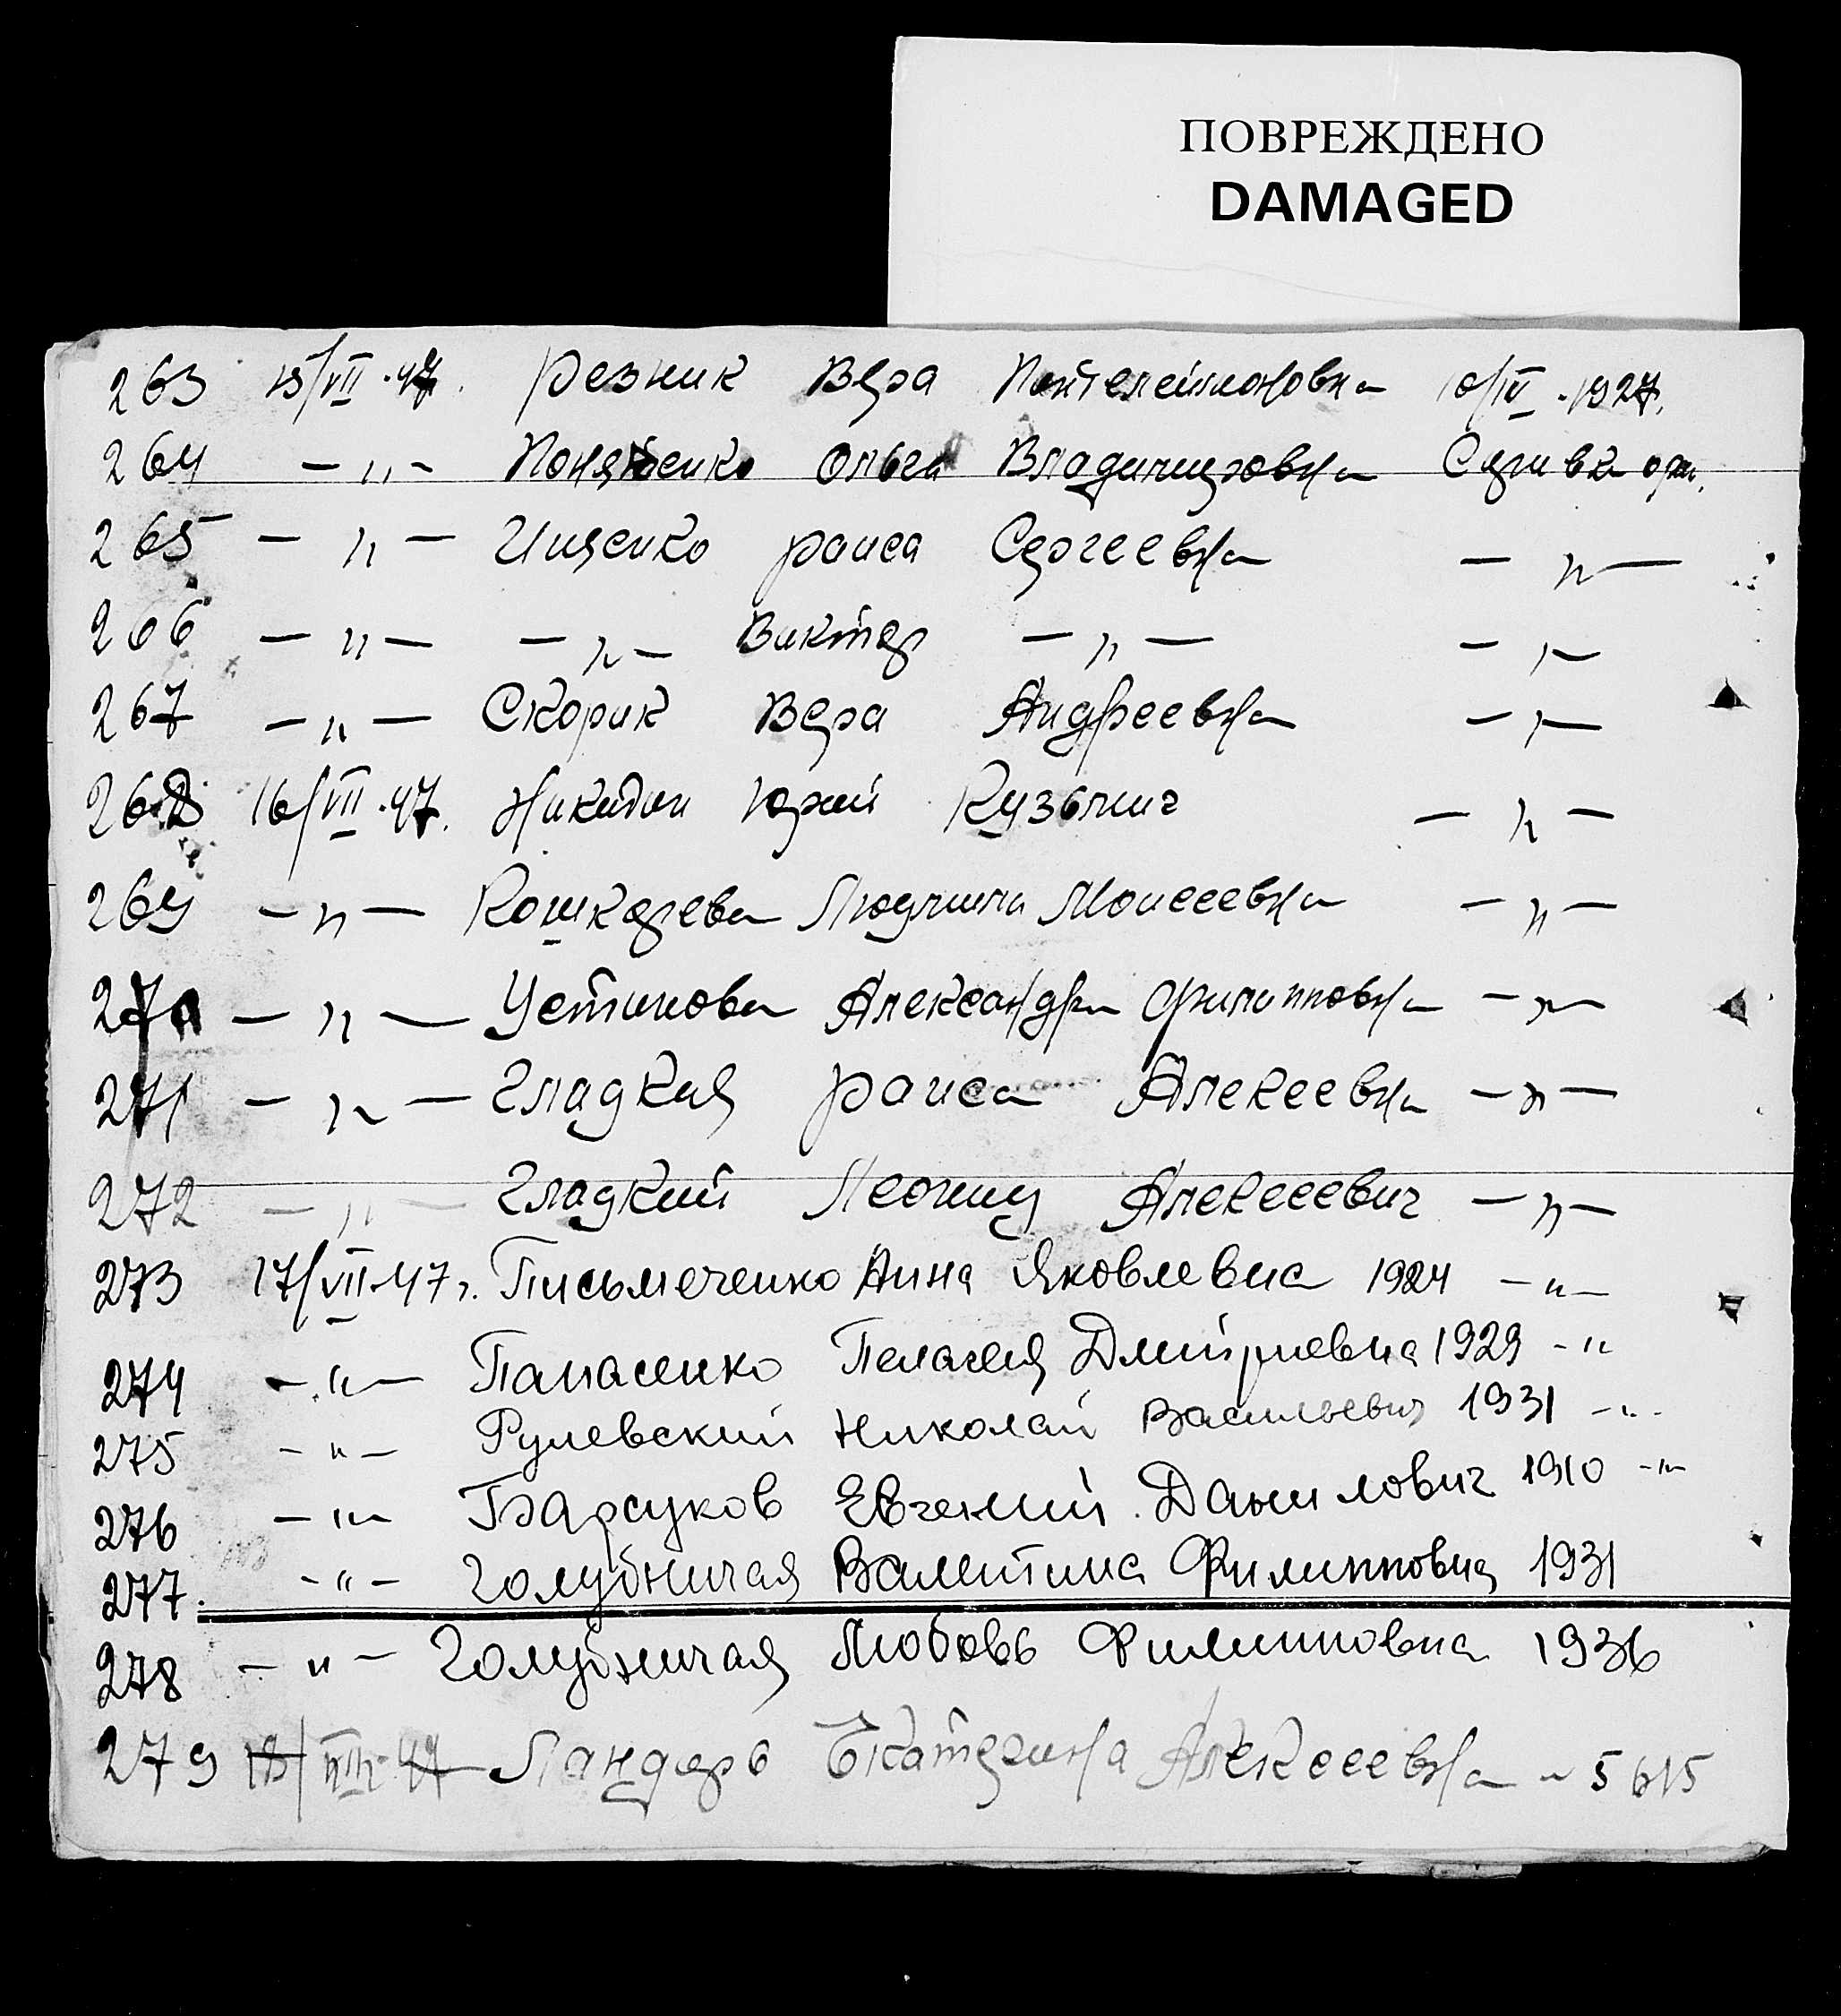 ПОВРЕЖДЕНО
DAMAGED
263 15/VII.47. Резник Вера Пантелеймоновна 10/IV.1927.
264 —"— Ольга Владимировна
265 —"— Ищенко Раиса Сергеевна —"—
266 —"— —"— Виктор —"— —"—
267 —"— Скорик Вера Андреевна —"—
268 16/VII.47. Никитин Юрий Кузьмич —"—
269 —"— Кошкарева Людмила Моисеевна —"—
270 —"— Устинова Александра Филипповна —"—
271 —"— Гладкая Раиса Алексеевна —"—
272 —"— Гладкий Леонид Алексеевич —"—
273 17/VII.47г. Письмеченко Анна Яковлевна 1924 —"—
274 —"— Панасенко Пелагея Дмитриевна 1929 —"
275 —"— Рулевский Николай Васильевич 1931 —"—
276 —"— Барсуков Евгений Данилович 1910 —"—
277. —"— Голубничая Валентина Филипповна 1931
278 —"— Голубничая Любовь Филипповна 1936
279 18/VII 47 Ландарь Екатерина Алексеевна — 5615